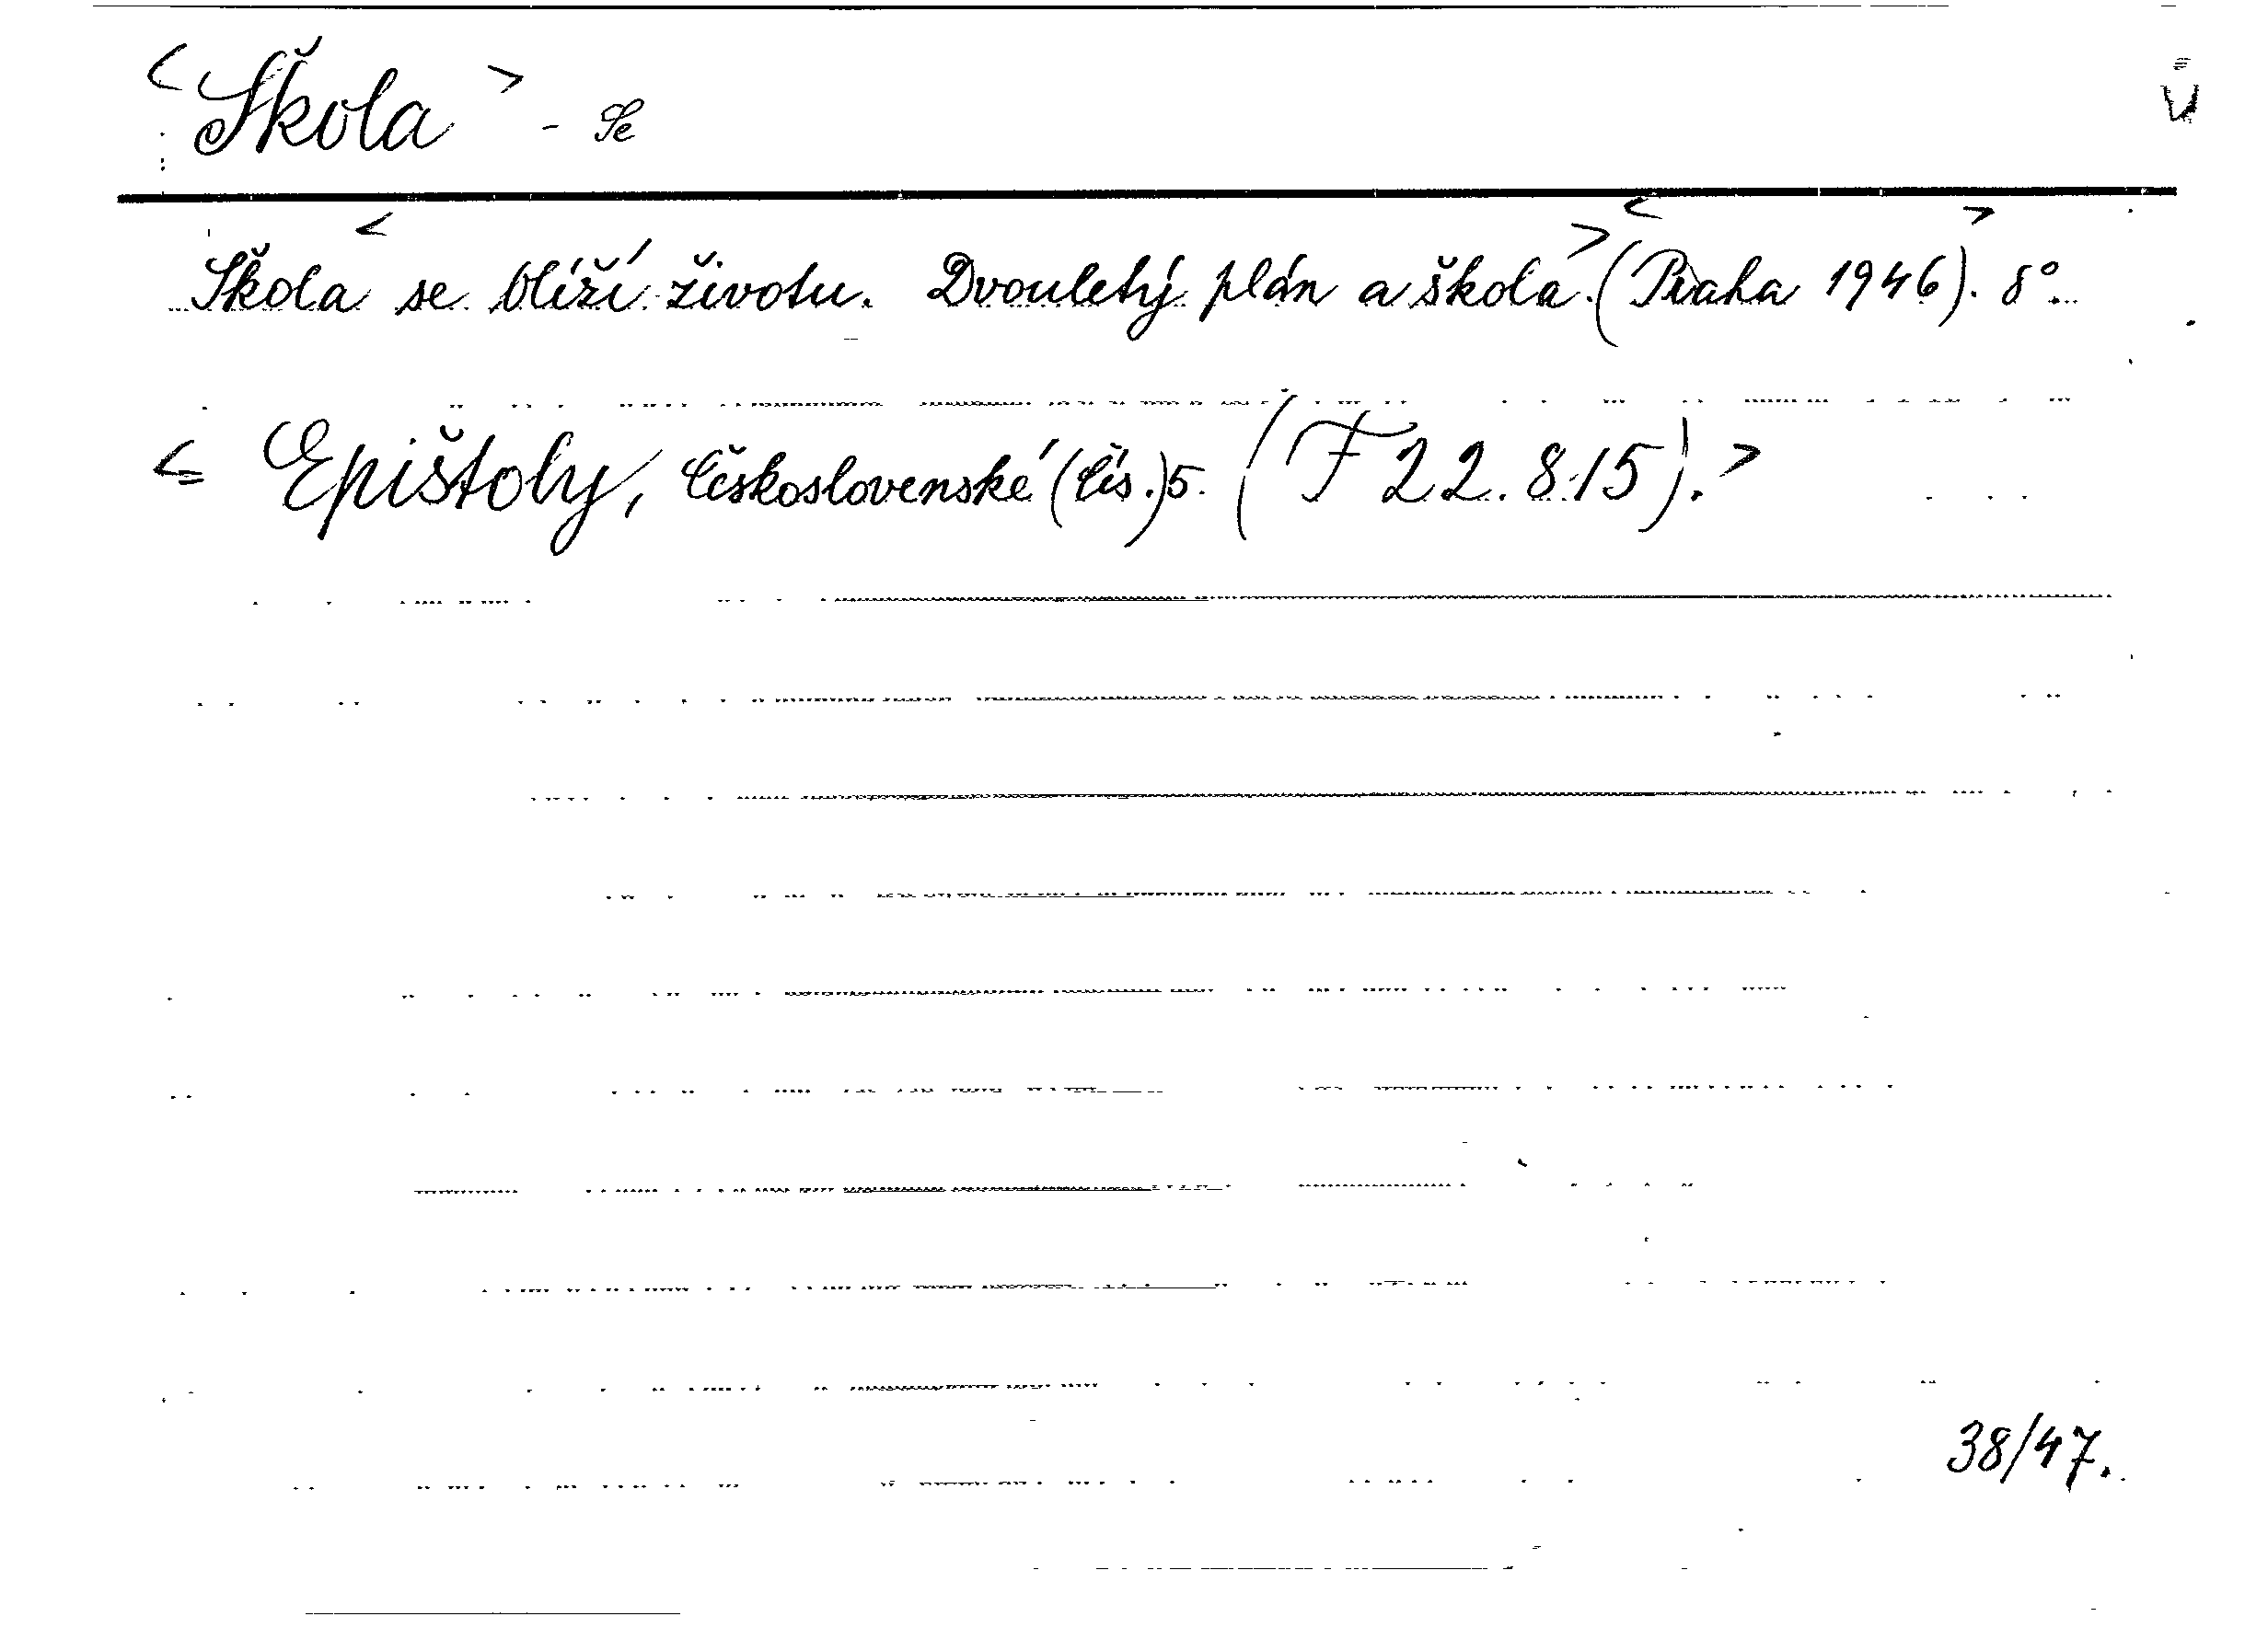 <Škola> - Se
Škola <se blíží životu. Dvouletý plán a škola.> (<Praha 1946>). 8°.
<= Epištoly, Československé (čís.) 5. (F 22.815).>
38/47.